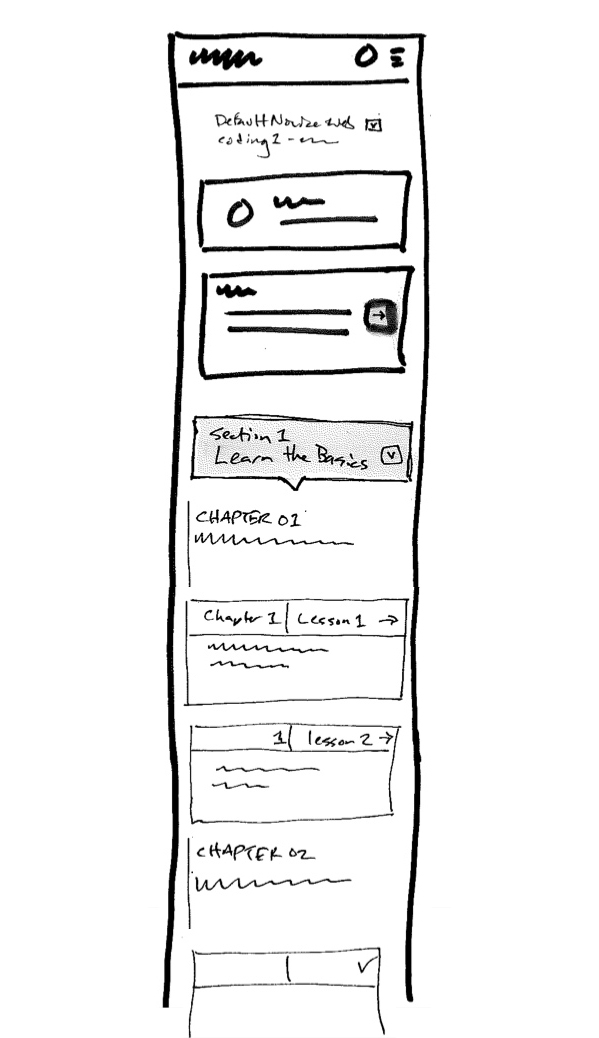 Default Novice Web
coding 2 -
section 1
Learn the Basics
CHAPTER 01
Chapter 1 | Lesson 1 →
1 | lesson 2 →
CHAPTER 02